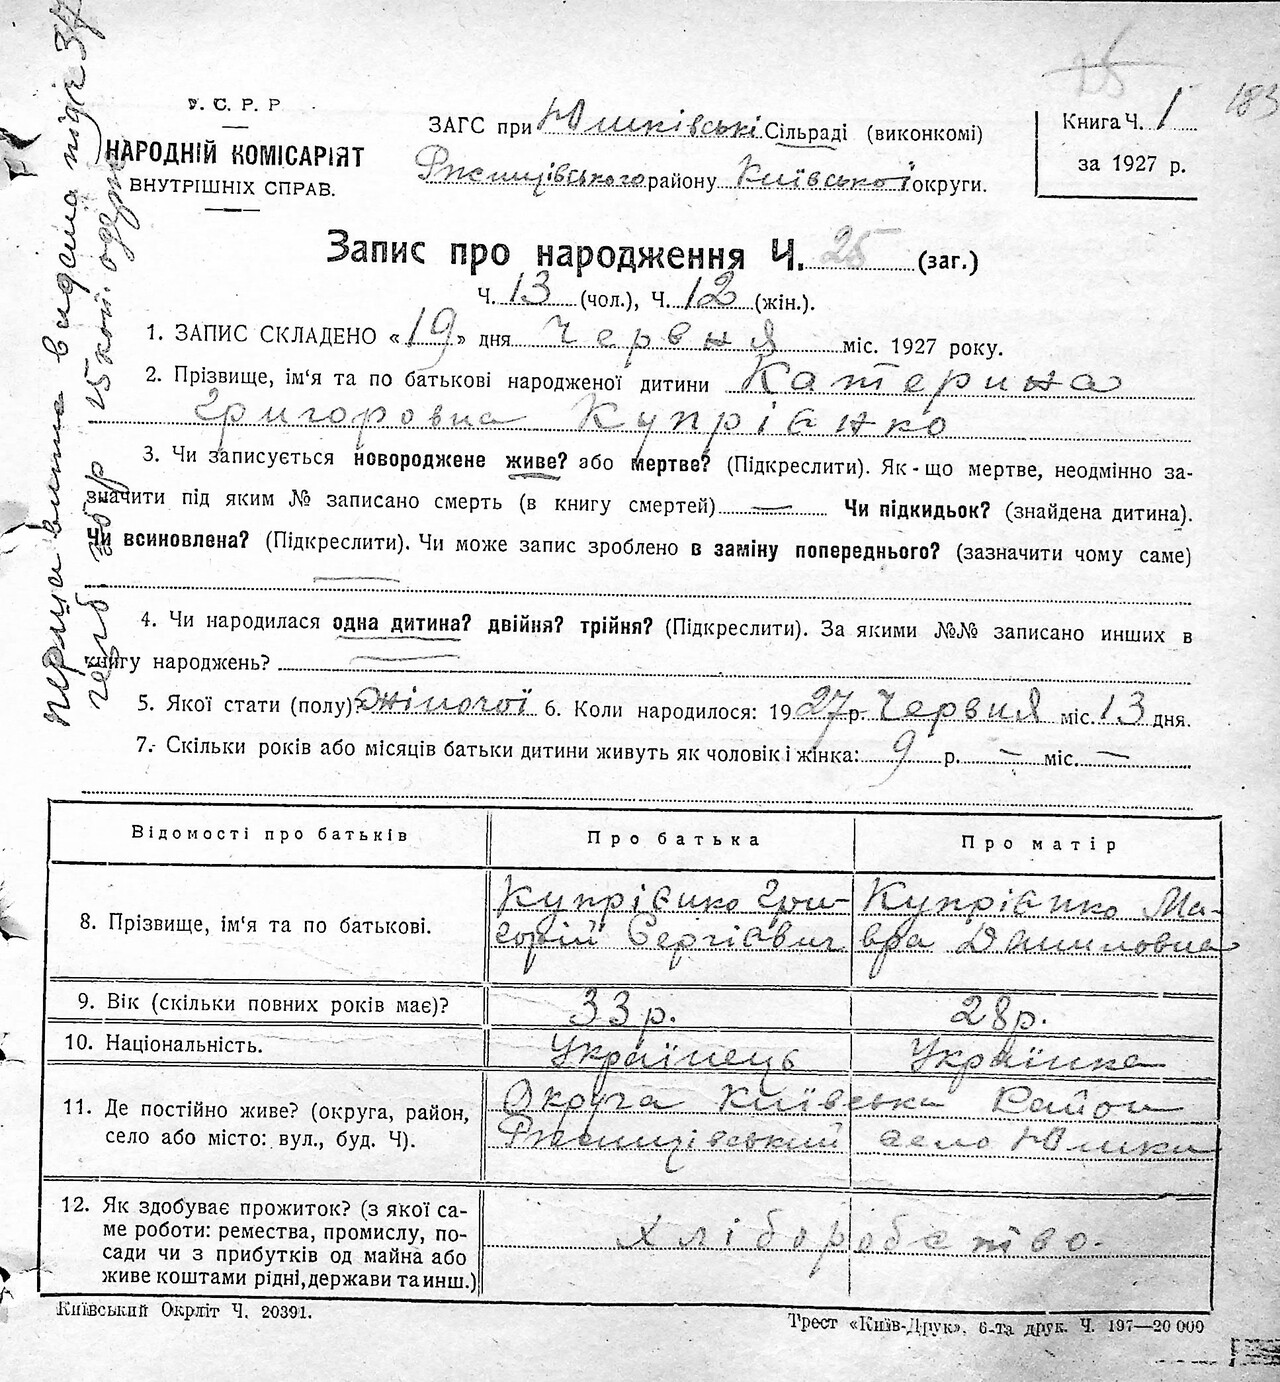 25
183
У. С. Р. Р.
НАРОДНІЙ КОМІСАРІЯТ
ВНУТРІШНІХ СПРАВ.
ЗАГС при Юшківські Сільраді (виконкомі)
Ржищівського району Київської округи.
Книга Ч. 1
за 1927 р.
Запис про народження Ч. 25 (заг.)
Ч. 13 (чол.), Ч. 12 (жін.).
1. ЗАПИС СКЛАДЕНО «19» дня Червня міс. 1927 року.
2. Прізвище, ім'я та по батькові народженої дитини Катерина
Григоровна Купрієнко
3. Чи записується новороджене живе? або мертве? (Підкреслити). Як-що мертве, неодмінно за-
значити під яким № записано смерть (в книгу смертей) — Чи підкидьок? (знайдена дитина).
Чи всиновлена? (Підкреслити). Чи може запис зроблено в заміну попереднього? (зазначити чому саме)
4. Чи народилася одна дитина? двійня? трійня? (Підкреслити). За якими №№ записано инших в
книгу народжень?
5. Якої стати (полу)? Жіночої 6. Коли народилося: 1927 р. Червня міс. 13 дня.
7. Скільки років або місяців батьки дитини живуть як чоловік і жінка: 9 р. — міс. —
Відомості про батьків Про батька Про матір
8. Прізвище, ім'я та по батькові. Купрієнко Гри- Купрієнко Ма-
горій Сергієвич вра Даниловна
9. Вік (скільки повних років має)? 33 р. 28 р.
10. Національність. Українець Українка
11. Де постійно живе? (округа, район, Округа Київська Район
село або місто: вул., буд. Ч). Ржищівський село Юшки
12. Як здобуває прожиток? (з якої са-
ме роботи: ремества, промислу, по- Хліборобство.
сади чи з прибутків од майна або
живе коштами рідні, держави та инш.)
Київський Окрліт Ч. 20391.
Трест «Київ-Друк», 6-та друк. Ч. 197—20 000
Перша випис видана під № 37
герб. зб р 25 коп. одерж